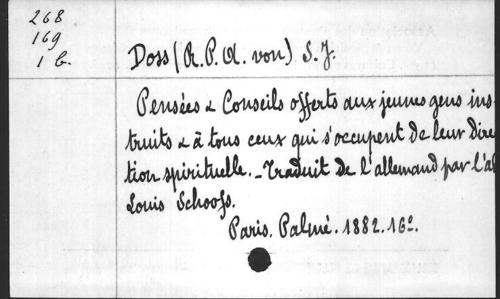 268
169
1 b.
Doss (R. P. A. von). S. J.
Pensées & Conseils offerts aux jeunes gens ins-
truits & à tous ceux qui s'occupent de leur direc
tion spirituelle. - Traduit de l'allemand par l'ab
Louis Schoofs.
Paris. Palmé. 1882. 16º.